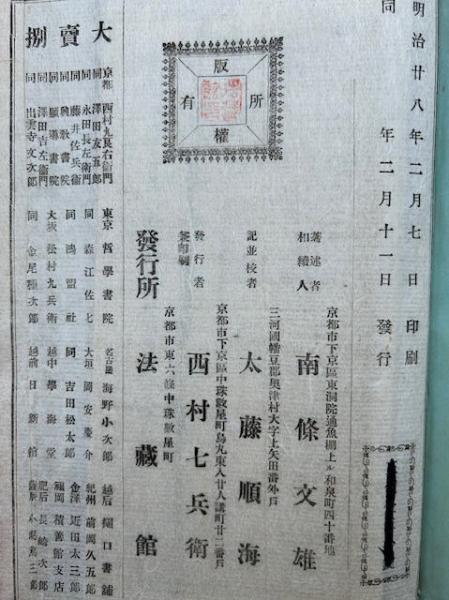 明治廿八年二月七日印刷
同 年二月十一日發行
版權所有
著述者
和續人
京都市下京區東洞院通魚棚上ル和泉町四十番地
南條文雄
記並校者
三河國幡豆郡奥津村大字上矢田番外戶
太藤順海
發行者
兼印刷
京都市下京區中珠數屋町烏丸東入廿人講町廿二番戶
西村七兵衛
京都市東六條中珠數屋町
發行所 法藏館
大賣捌
京都 西村九良右衛門
同 澤田友五郎
同 永田長左衛門
同 藤井佐兵衛
同 興教書院
同 顯道書院
同 澤田吉左衛門
同 出雲寺文次郎
東京 哲學書院
同 森江佐七
同 鴻盟社
大坂 松村九兵衛
同 金尾種次郎
名古屋 海野小次郎
大垣 岡安慶介
同 吉田松太郎
越中 學海堂
越前 日新館
越后 樋口書舖
紀州 前嶋久五郎
金澤 近田太三郎
福岡 積善館支店
肥后 長崎次郎